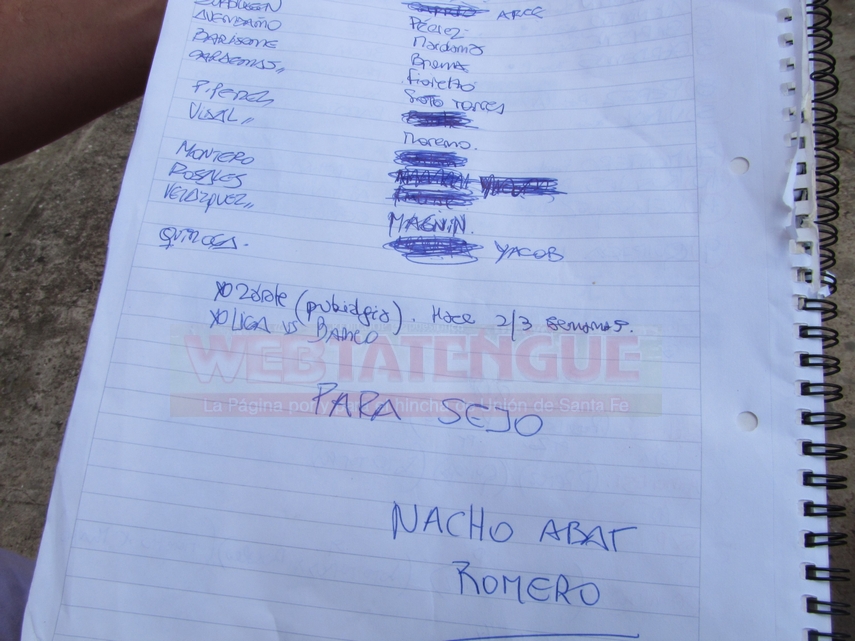 AVENDAÑO Pérez
BARISONE Mardoma
CARDENAS,, Brena
P. PEREZ SOTO TORRES
VIDAL,,
Moreno.
MONTERO
ROSALES
VELAZQUEZ,, MAGNIN.
QUIROGA. YACOB
ARCE
XO Zárate (pubialgia). Hace 2/3 semanas.
XO LIGA vs BANCO
WEBTATENGUE
La Página por y para el hincha de Unión de Santa Fe
PARA SEJO
NACHO ABAT
ROMERO